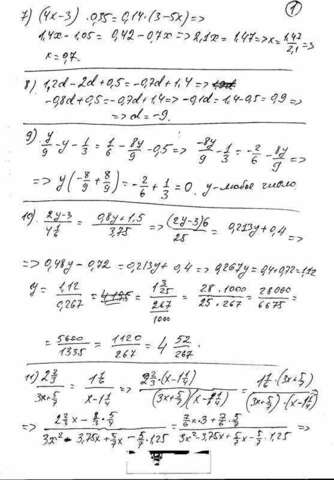 1
7) (4x-3) · 0,35 = 0,14 · (3-5x) =>
1,4x - 1,05 = 0,42 - 0,7x => 2,1x = 1,47 => x = 1,47/2,1 =>
x = 0,7.
8) 1,2d - 2d + 0,5 = -0,7d + 1,4 =>
-0,8d + 0,5 = -0,7d + 1,4 => -0,1d = 1,4 - 0,5 = 0,9 =>
=> d = -9.
9) y/9 - y - 1/3 = 1/6 - 8y/9 - 0,5 => -8y/9 - 1/3 = -2/6 - 8y/9 =>
=> y(-8/9 + 8/9) = -2/6 + 1/3 = 0. y - любое число.
10) 2y-3 / 4 1/6 = 0,8y + 1,5 / 3,75 => (2y-3)6 / 25 = 0,213y + 0,4 =>
=> 0,48y - 0,72 = 0,213y + 0,4 => 0,267y = 0,4 + 0,72 = 1,12
y = 1,12/0,267 = 1 3/25 / 267/1000 = 28 · 1000 / 25 · 267 = 28000/6675 =
= 5600/1335 = 1120/267 = 4 52/267.
11) 2 2/3 / 3x + 5/7 = 1 1/6 / x - 1 1/4 => 2 2/3 · (x - 1 1/4) / (3x + 5/7)(x - 1 1/4) = 1 1/6 · (3x + 5/7) / (3x + 5/7) · (x - 1 1/4)
=> 2 2/3 x - 8/3 · 5/4 / 3x² - 3,75x + 5/7 x - 5/7 · 1,25 = 7/6 x · 3 + 7/6 · 5/7 / 3x² - 3,75x + 5/7 x - 5/7 · 1,25 =>